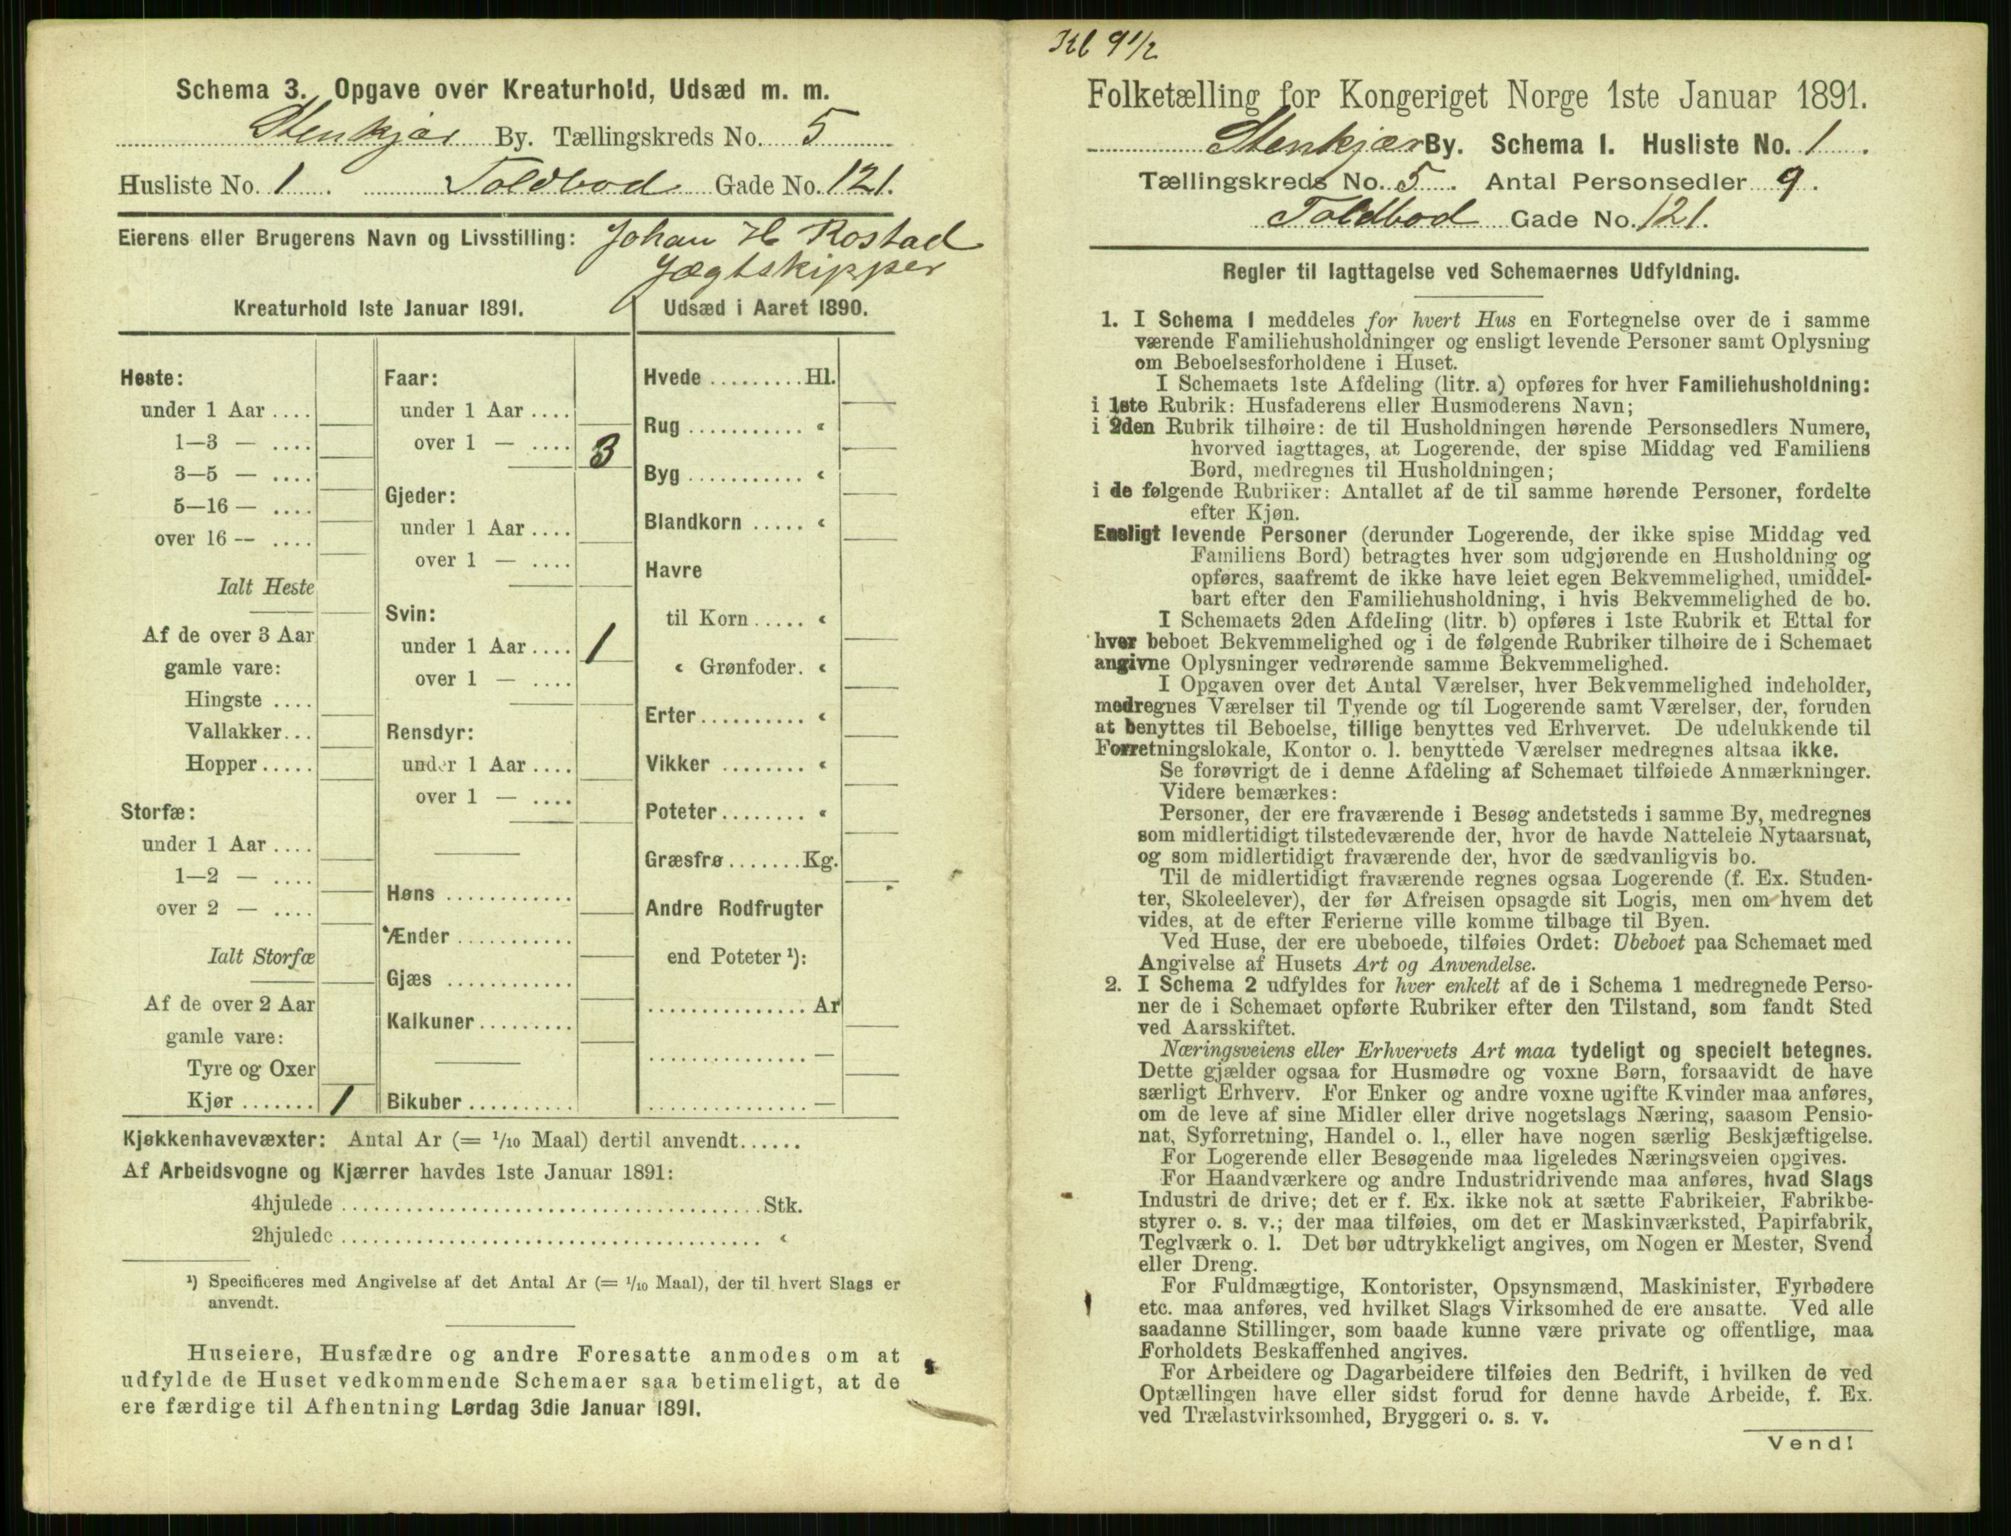 Schema 3. Opgave over Kreaturhold, Udsæd m. m.
Stenkjær By. Tællingskreds No. 5
Husliste No. 1 Toldbod Gade No. 121.
Eierens eller Brugerens Navn og Livsstilling: Johan H Rostad
Jægtskipper
Kreaturhold 1ste Januar 1891.
Heste:
under 1 Aar ....
1—3 — ....
3—5 — ....
5—16 — ....
over 16 — ....
Ialt Heste
Af de over 3 Aar
gamle vare:
Hingste ....
Vallakker...
Hopper.....
Storfæ:
under 1 Aar ....
1—2 — ....
over 2 — ....
Ialt Storfæ
Af de over 2 Aar
gamle vare:
Tyre og Oxer
Kjør ....... 1
Faar:
under 1 Aar ....
over 1 — .... 3
Gjeder:
under 1 Aar ....
over 1 — ....
Svin:
under 1 Aar .... 1
over 1 — ....
Rensdyr:
under 1 Aar ....
over 1 — ....
Høns ...........
Ænder ...........
Gjæs ...........
Kalkuner.........
Bikuber ..........
Udsæd i Aaret 1890.
Hvede .........Hl.
Rug ........... «
Byg ........... «
Blandkorn ..... «
Havre
til Korn ..... «
« Grønfoder. «
Erter.......... «
Vikker ........ «
Poteter........ «
Græsfrø.......Kg.
Andre Rodfrugter
end Poteter ¹):
...............Ar
............... —
............... —
Kjøkkenhavevæxter: Antal Ar (= 1/10 Maal) dertil anvendt......
Af Arbeidsvogne og Kjærrer havdes 1ste Januar 1891:
4hjulede ......................................Stk.
2hjulede ...................................... «
¹) Specificeres med Angivelse af det Antal Ar (= 1/10 Maal), der til hvert Slags er
anvendt.
Huseiere, Husfædre og andre Foresatte anmodes om at
udfylde de Huset vedkommende Schemaer saa betimeligt, at de
ere færdige til Afhentning Lørdag 3die Januar 1891.
Kl 9 1/2
Folketælling for Kongeriget Norge 1ste Januar 1891.
Stenkjær By. Schema I. Husliste No. 1.
Tællingskreds No. 5. Antal Personsedler 9.
Toldbod Gade No. 121.
Regler til Iagttagelse ved Schemaernes Udfyldning.
1. I Schema I meddeles for hvert Hus en Fortegnelse over de i samme
værende Familiehusholdninger og ensligt levende Personer samt Oplysning
om Beboelsesforholdene i Huset.
I Schemaets 1ste Afdeling (litr. a) opføres for hver Familiehusholdning:
i 1ste Rubrik: Husfaderens eller Husmoderens Navn;
i 2den Rubrik tilhøire: de til Husholdningen hørende Personsedlers Numere,
hvorved iagttages, at Logerende, der spise Middag ved Familiens
Bord, medregnes til Husholdningen;
i de følgende Rubriker: Antallet af de til samme hørende Personer, fordelte
efter Kjøn.
Ensligt levende Personer (derunder Logerende, der ikke spise Middag ved
Familiens Bord) betragtes hver som udgjørende en Husholdning og
opføres, saafremt de ikke have leiet egen Bekvemmelighed, umiddel-
bart efter den Familiehusholdning, i hvis Bekvemmelighed de bo.
I Schemaets 2den Afdeling (litr. b) opføres i 1ste Rubrik et Ettal for
hver beboet Bekvemmelighed og i de følgende Rubriker tilhøire de i Schemaet
angivne Oplysninger vedrørende samme Bekvemmelighed.
I Opgaven over det Antal Værelser, hver Bekvemmelighed indeholder,
medregnes Værelser til Tyende og til Logerende samt Værelser, der, foruden
at benyttes til Beboelse, tillige benyttes ved Erhvervet. De udelukkende til
Forretningslokale, Kontor o. l. benyttede Værelser medregnes altsaa ikke.
Se forøvrigt de i denne Afdeling af Schemaet tilføiede Anmærkninger.
Videre bemærkes:
Personer, der ere fraværende i Besøg andetsteds i samme By, medregnes
som midlertidigt tilstedeværende der, hvor de havde Natteleie Nytaarsnat,
og som midlertidigt fraværende der, hvor de sædvanligvis bo.
Til de midlertidigt fraværende regnes ogsaa Logerende (f. Ex. Studen-
ter, Skoleelever), der før Afreisen opsagde sit Logis, men om hvem det
vides, at de efter Ferierne ville komme tilbage til Byen.
Ved Huse, der ere ubeboede, tilføies Ordet: Ubeboet paa Schemaet med
Angivelse af Husets Art og Anvendelse.
2. I Schema 2 udfyldes for hver enkelt af de i Schema 1 medregnede Perso-
ner de i Schemaet opførte Rubriker efter den Tilstand, som fandt Sted
ved Aarsskiftet.
Næringsveiens eller Erhvervets Art maa tydeligt og specielt betegnes.
Dette gjælder ogsaa for Husmødre og voxne Børn, forsaavidt de have
særligt Erhverv. For Enker og andre voxne ugifte Kvinder maa anføres,
om de leve af sine Midler eller drive nogetslags Næring, saasom Pensio-
nat, Syforretning, Handel o. l., eller have nogen særlig Beskjæftigelse.
For Logerende eller Besøgende maa ligeledes Næringsveien opgives.
For Haandværkere og andre Industridrivende maa anføres, hvad Slags
Industri de drive; det er f. Ex. ikke nok at sætte Fabrikeier, Fabrikbe-
styrer o. s. v.; der maa tilføies, om det er Maskinværksted, Papirfabrik,
Teglværk o. l. Det bør udtrykkeligt angives, om Nogen er Mester, Svend
eller Dreng.
For Fuldmægtige, Kontorister, Opsynsmænd, Maskinister, Fyrbødere
etc. maa anføres, ved hvilket Slags Virksomhed de ere ansatte. Ved alle
saadanne Stillinger, som baade kunne være private og offentlige, maa
Forholdets Beskaffenhed angives.
For Arbeidere og Dagarbeidere tilføies den Bedrift, i hvilken de ved
Optællingen have eller sidst forud for denne havde Arbeide, f. Ex.
ved Trælastvirksomhed, Bryggeri o. s. v.
Vend!